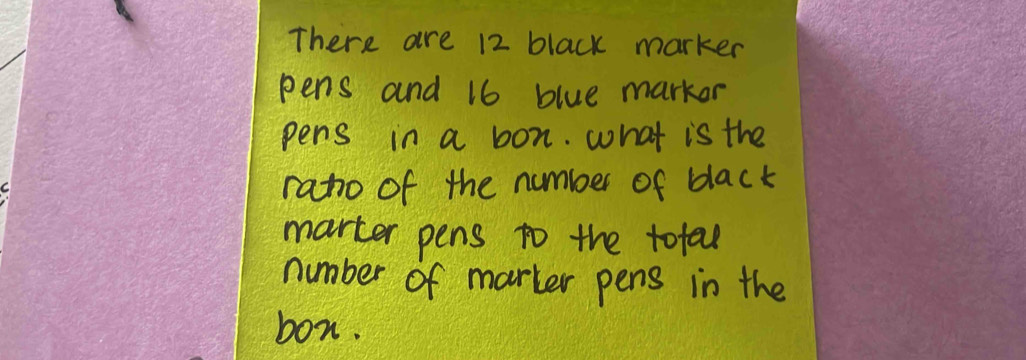 There are 12 black marker
pens and 16 blue marker
pens in a box. what is the
ratio of the number of black
marker pens to the total
number of marker pens in the
box.